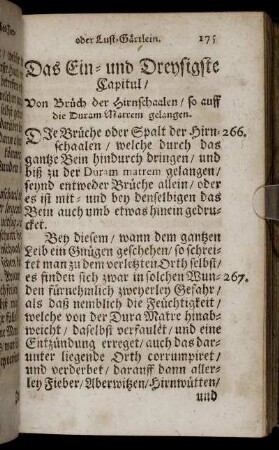 oder Lust-Gärtlein. 175
Das Ein- und Dreysigste
Capitul/
Von Brüch der Hirnschaalen/ so auff
die Duram Matrem gelangen.
DIe Brüche oder Spalt der Hirn- 266.
schaalen/ welche durch das
gantze Bein hindurch dringen/ und
biß zu der Duram matrem gelangen/
seynd entweder Brüche allein/ oder
es ist mit- und bey denselbigen das
Bein auch umb etwas hinein gedru-
cket.
Bey diesem/ wann dem gantzen
Leib ein Gnügen geschehen/ so schrei-
tet man zu dem verletzten Orth selbst/
es finden sich zwar in solchen Wun- 267.
den fürnehmlich zweyerley Gefahr/
als daß nemblich die Feüchtigkeit/
welche von der Dura Matre hinab-
weicht/ daselbst verfaulet/ und eine
Entzündung erreget/ auch das dar-
unter liegende Orth corrumpiret/
und verderbet/ darauff dann aller-
ley Fieber/ Aberwitzen/ Hirnwütten/
und